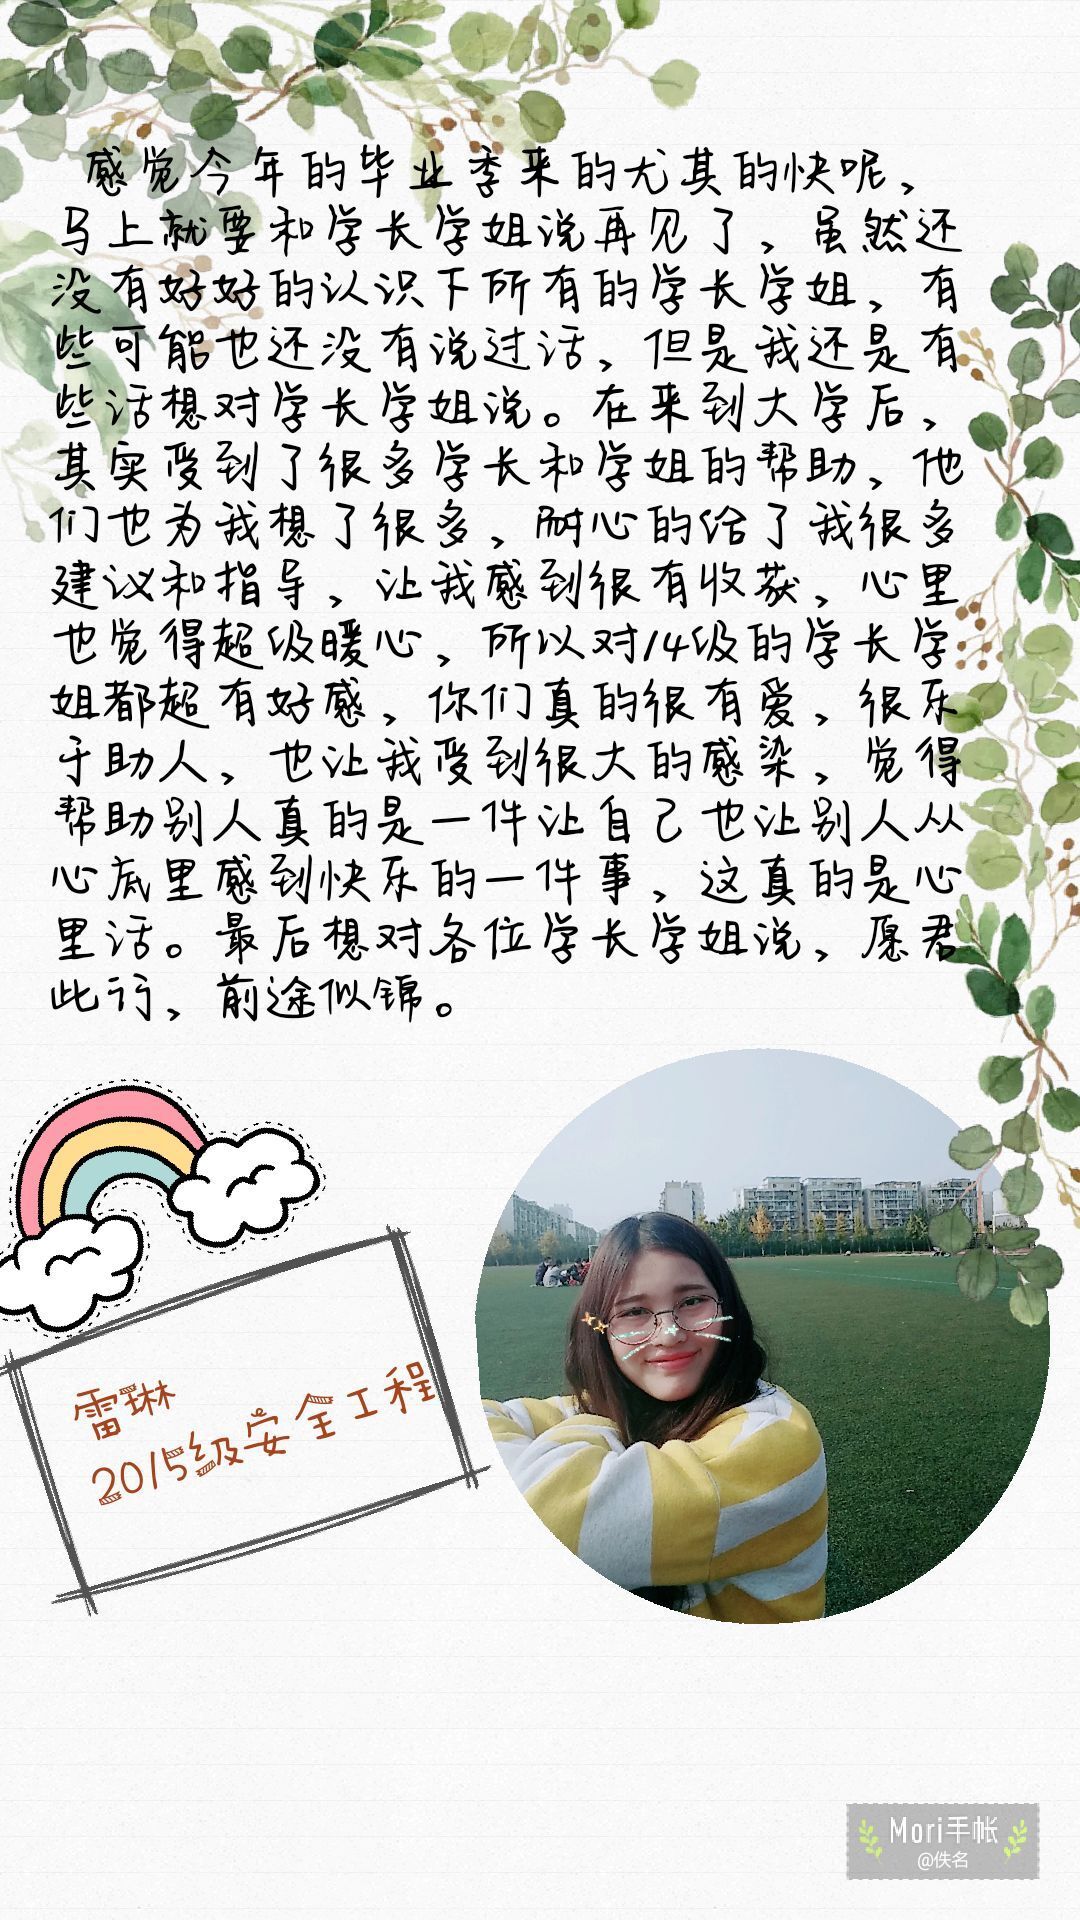 感觉今年的毕业季来的尤其的快呢，
马上就要和学长学姐说再见了，虽然还
没有好好的认识下所有的学长学姐，有
些可能也还没有说过话，但是我还是有
些话想对学长学姐说。在来到大学后，
其实受到了很多学长和学姐的帮助，他
们也为我想了很多，耐心的给了我很多
建议和指导，让我感到很有收获，心里
也觉得超级暖心，所以对14级的学长学
姐都超有好感，你们真的很有爱，很乐
于助人，也让我受到很大的感染，觉得
帮助别人真的是一件让自己也让别人从
心底里感到快乐的一件事，这真的是心
里话。最后想对各位学长学姐说，愿君
此行，前途似锦。
雷琳
2015级安全工程
Mori手帐
@佚名